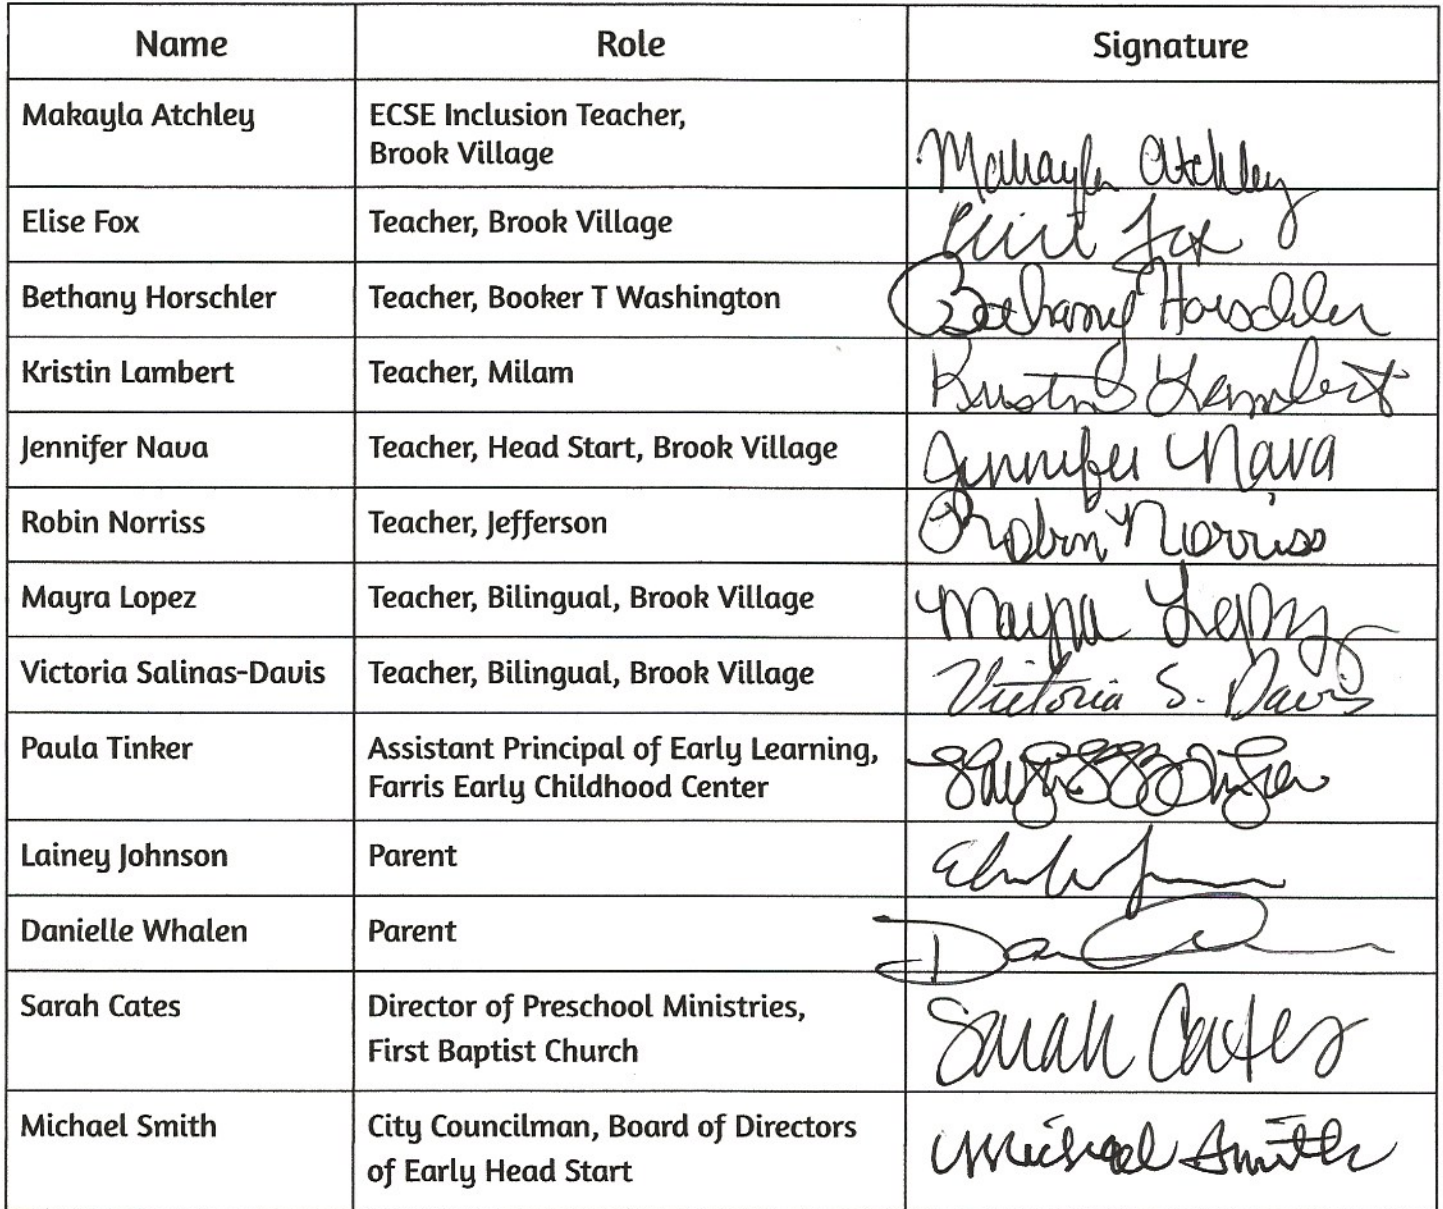 Name Role Signature
Makayla Atchley ECSE Inclusion Teacher, Makayla Atchley
Brook Village
Elise Fox Teacher, Brook Village Elise Fox
Bethany Horschler Teacher, Booker T Washington Bethany Horschler
Kristin Lambert Teacher, Milam Kristin Lambert
Jennifer Nava Teacher, Head Start, Brook Village Jennifer Nava
Robin Norriss Teacher, Jefferson Robin Norriss
Mayra Lopez Teacher, Bilingual, Brook Village Mayra Lopez
Victoria Salinas-Davis Teacher, Bilingual, Brook Village Victoria S. Davis
Paula Tinker Assistant Principal of Early Learning,
Farris Early Childhood Center
Lainey Johnson Parent
Danielle Whalen Parent
Sarah Cates Director of Preschool Ministries, Sarah Cates
First Baptist Church
Michael Smith City Councilman, Board of Directors Michael Smith
of Early Head Start